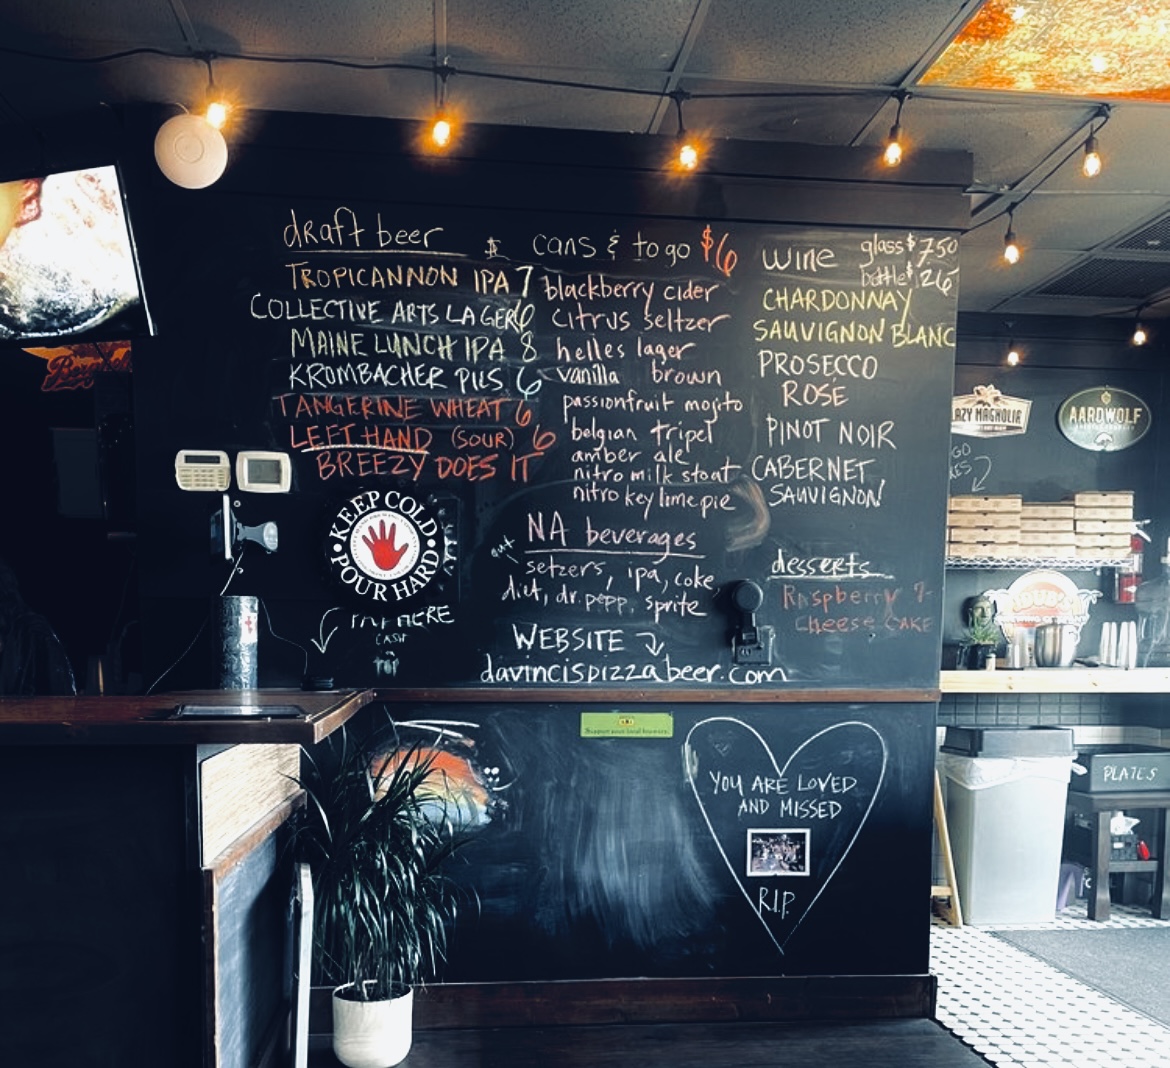 draft beer $
TROPICANNON IPA 7
COLLECTIVE ARTS LAGER 6
MAINE LUNCH IPA 8
KROMBACHER PILS 6
TANGERINE WHEAT 6
LEFT HAND (SOUR) 6
BREEZY DOES IT
KEEP COLD
POUR HARD
PAY HERE
CASH
cans & to go $6
blackberry cider
citrus seltzer
helles lager
vanilla brown
passionfruit mojito
belgian tripel
amber ale
nitro milk stout
nitro key lime pie
NA beverages
setzers, ipa, coke
diet, dr. pepp, sprite
WEBSITE
davincispizzabeer.com
wine glass $7.50
bottle $26
CHARDONNAY
SAUVIGNON BLANC
PROSECCO
ROSE
PINOT NOIR
CABERNET
SAUVIGNON
desserts
Raspberry 7-
cheese CAKE
AZY MAGNOLIA
AARDWOLF
GO
PLATES
Support your local brewery
YOU ARE LOVED
AND MISSED
R.I.P.